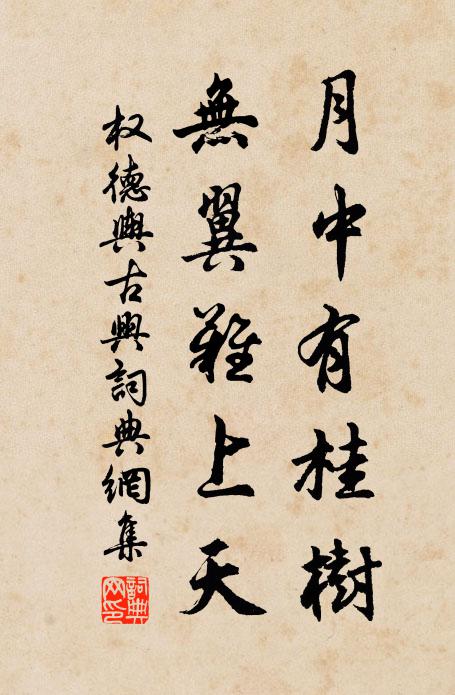 月中有桂樹
無翼難上天
权德輿古興詞典網集
詞典网印